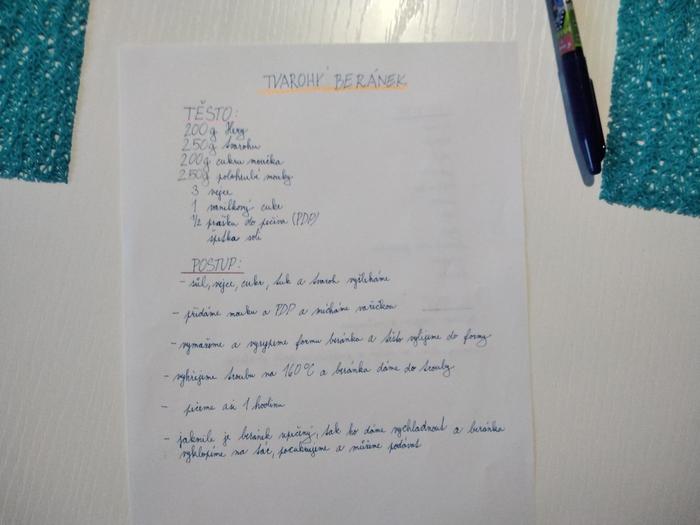 TVAROHÝ BERÁNEK
TĚSTO:
200g Hery
250g tvarohu
200g cukru moučka
250g polohrubé mouky
3 vejce
1 vanilkový cukr
1/2 prášku do pečiva (PDP)
špetka soli
POSTUP:
- sůl, vejce, cukr, tuk a tvaroh vyšleháme
- přidáme mouku a PDP a mícháme vařečkou
- vymažeme a vysypeme formu beránka a těsto vylijeme do formy
- vyhřejeme troubu na 160°C a beránka dáme do trouby
- pečeme asi 1 hodinu
- jakmile je beránek upečený, tak ho dáme vychladnout a beránka
vyklopíme na tác, pocukrujeme a můžeme podávat